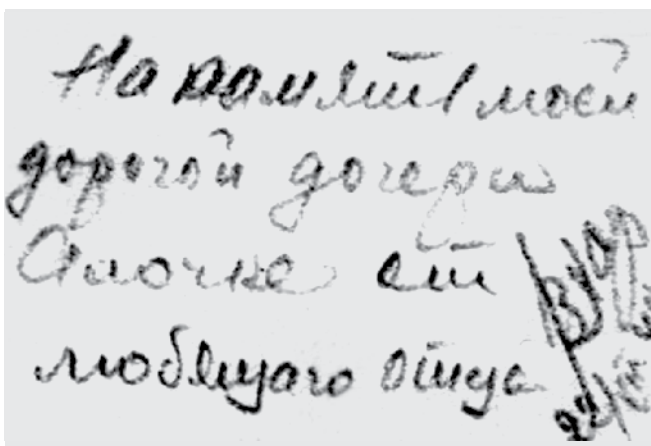 На память моей
дорогой дочери
Алочке от
любящего отца